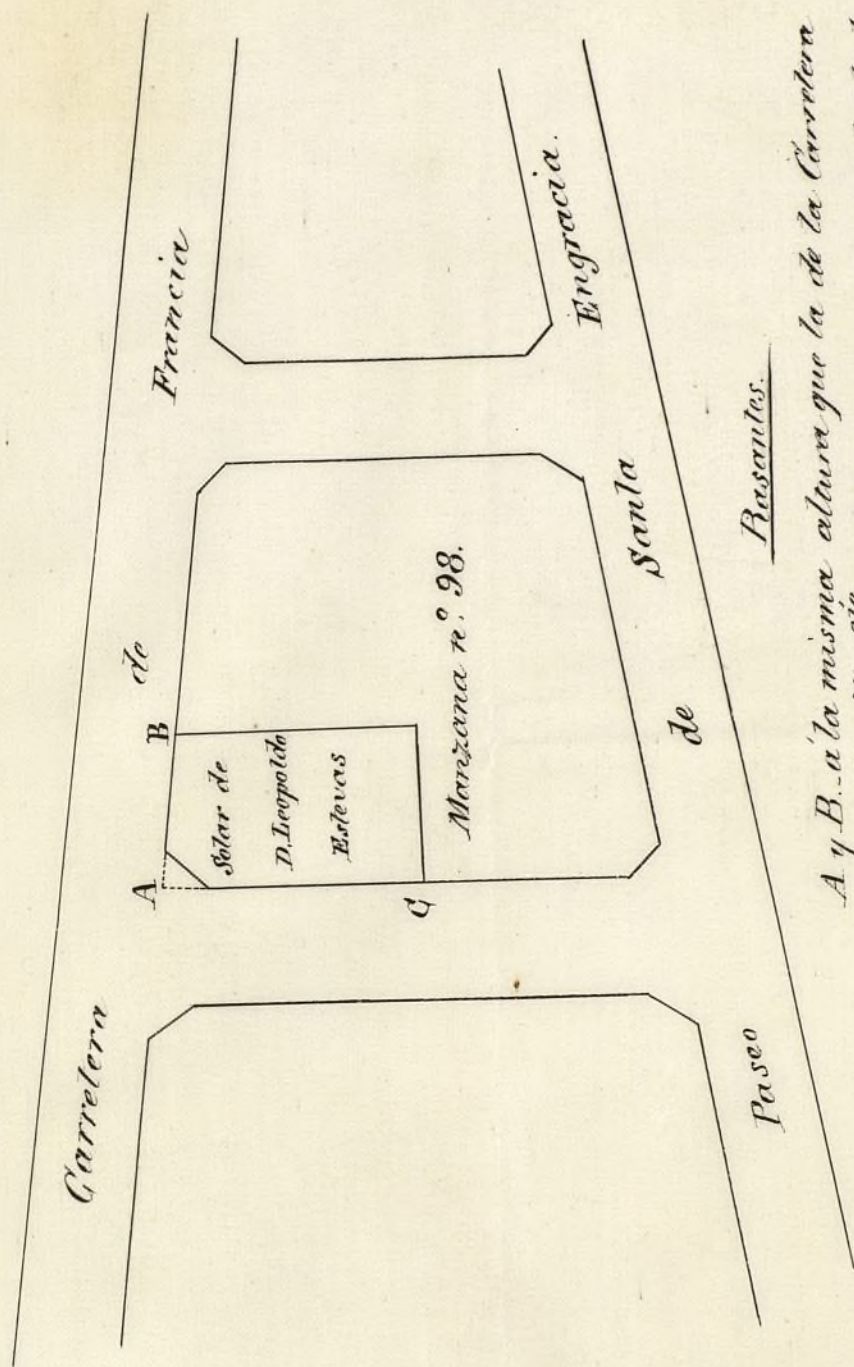 Carretera de Francia
A
B
C
Solar de
D. Leopoldo
Estevas
Manzana n.º 98.
Paseo de Santa Engracia.
Rasantes.
A y B.. á la misma altura que la de la Carretera